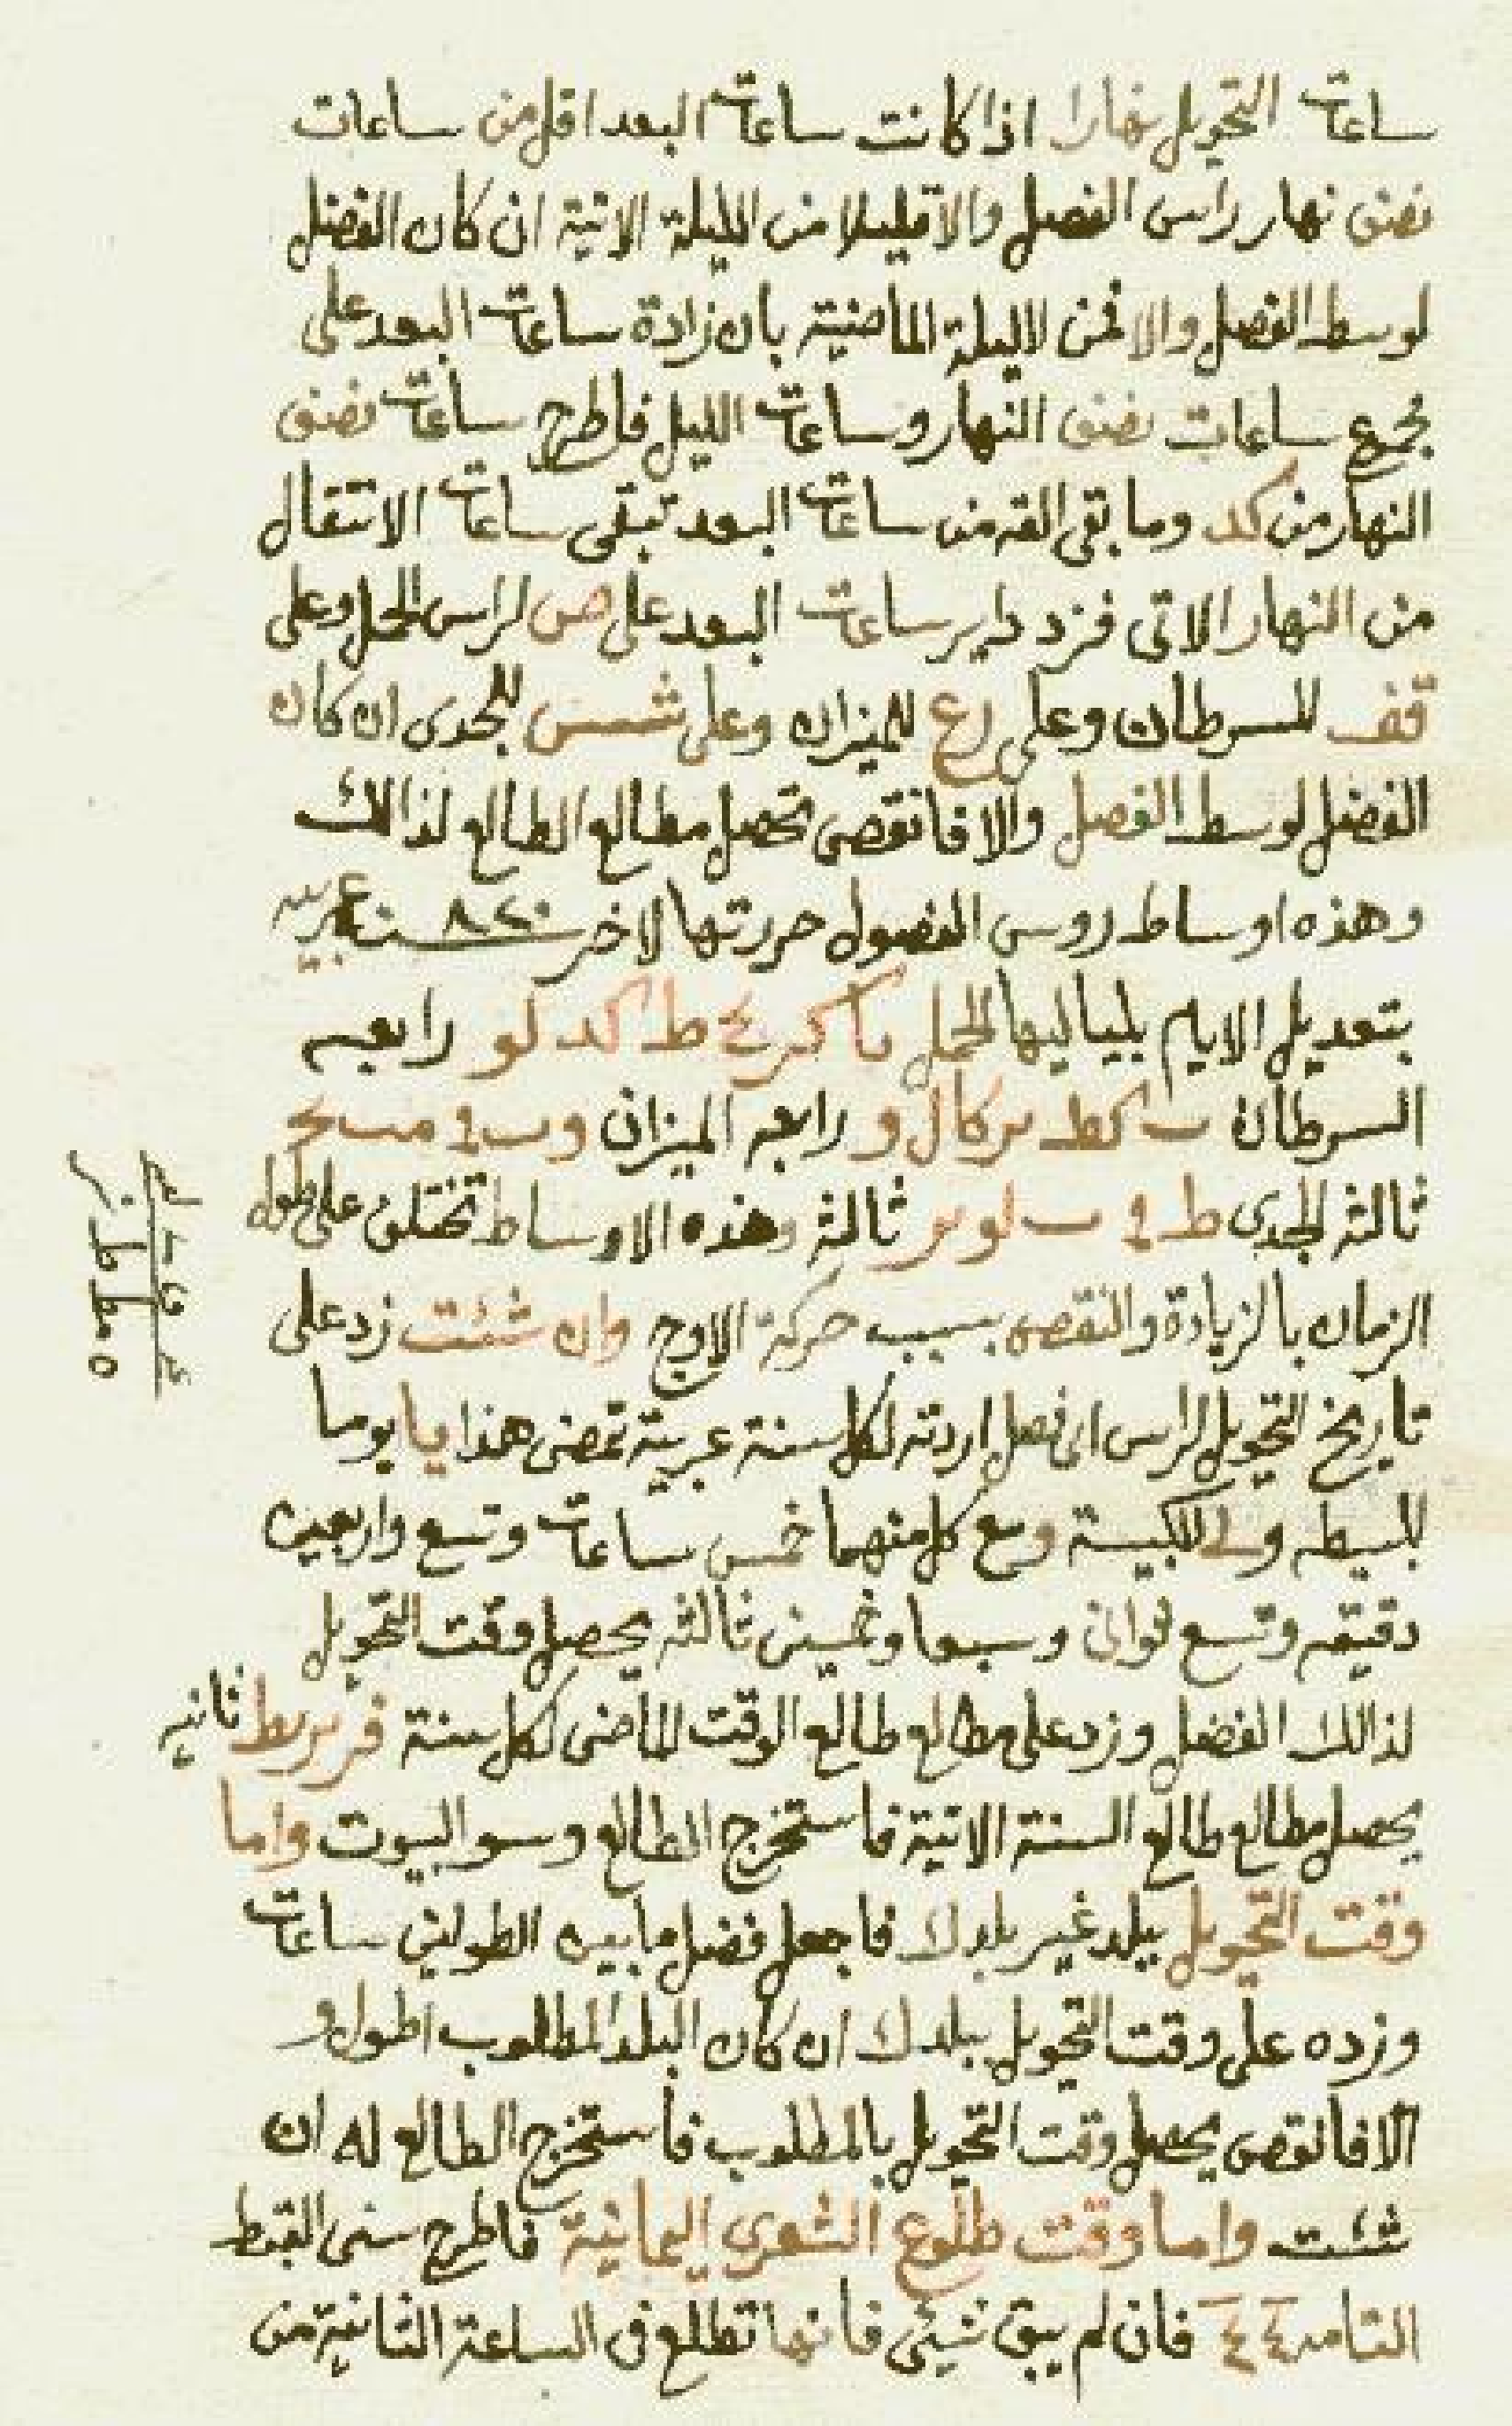 ساعات التحويل نهارا اذا كانت ساعات البعد اقل من ساعات
نصف نهار راس الفصل والا قليلا من الليلة الاتية ان كان الفضل
لوسط الفصل والا فمن لاليلة الماضية بان زادة ساعات البعد على
مجموع ساعات نصف النهار وساعات الليل فاطرح ساعات نصف
النهار من كد وما بقى القه من ساعات البعد تبقى ساعات الانتقال
من النهار الاتى فزد داير ساعات البعد على ص لراس الحمل وعلى
قف للسرطان وعلى رع للميزان وعلى شسس للجدى ان كان
الفضل لوسط الفصل والا فانقص تحصل مطالع الطالع لذالك
وهذه اوساط روس الفصول حررتها لاخر سنة ٨٢٠ عربيه
بتعديل الايام بلياليها للحمل ط كد لو رابعه
السرطان كط رابعه الميزان
ثالثه للجدى ط ثالثة وهذه الاوساط تختلف على طول
الزمان بالزيادة والنقص بسبب حركة الاوج وان شئت زد على
تاريخ التحويل لراس اى فصل اردته لكل سنة عربية تمضى هذا يا يوما
للبسيطه وللكبيسة ومع كل منهما خمس ساعات وتسع واربعين
دقيقه وتسع ثوانى وسبعا وخمسين ثالثه يحصل وقت التحويل
لذالك الفضل وزد على مطالع طالع الوقت الماضى لكل سنة ثانيه
يحصل مطالع طالع السنة الاتية فاستخرج الطالع وسو البيوت واما
وقت التحويل ببلد غير بلدك فاجعل فضل ما بين الطولين ساعات
وزده على وقت التحويل ببلدك ان كان البلد المطلوب اطول و
الا فانقص يحصل وقت التحويل بالمطلوب فاستخرج الطالع له ان
شئت واما وقت طلوع الشعرى اليمانية فاطرح سنى القبط
التامه ٤ ٤ فان لم يبق شيئى فانها تطلع فى الساعة الثانية من